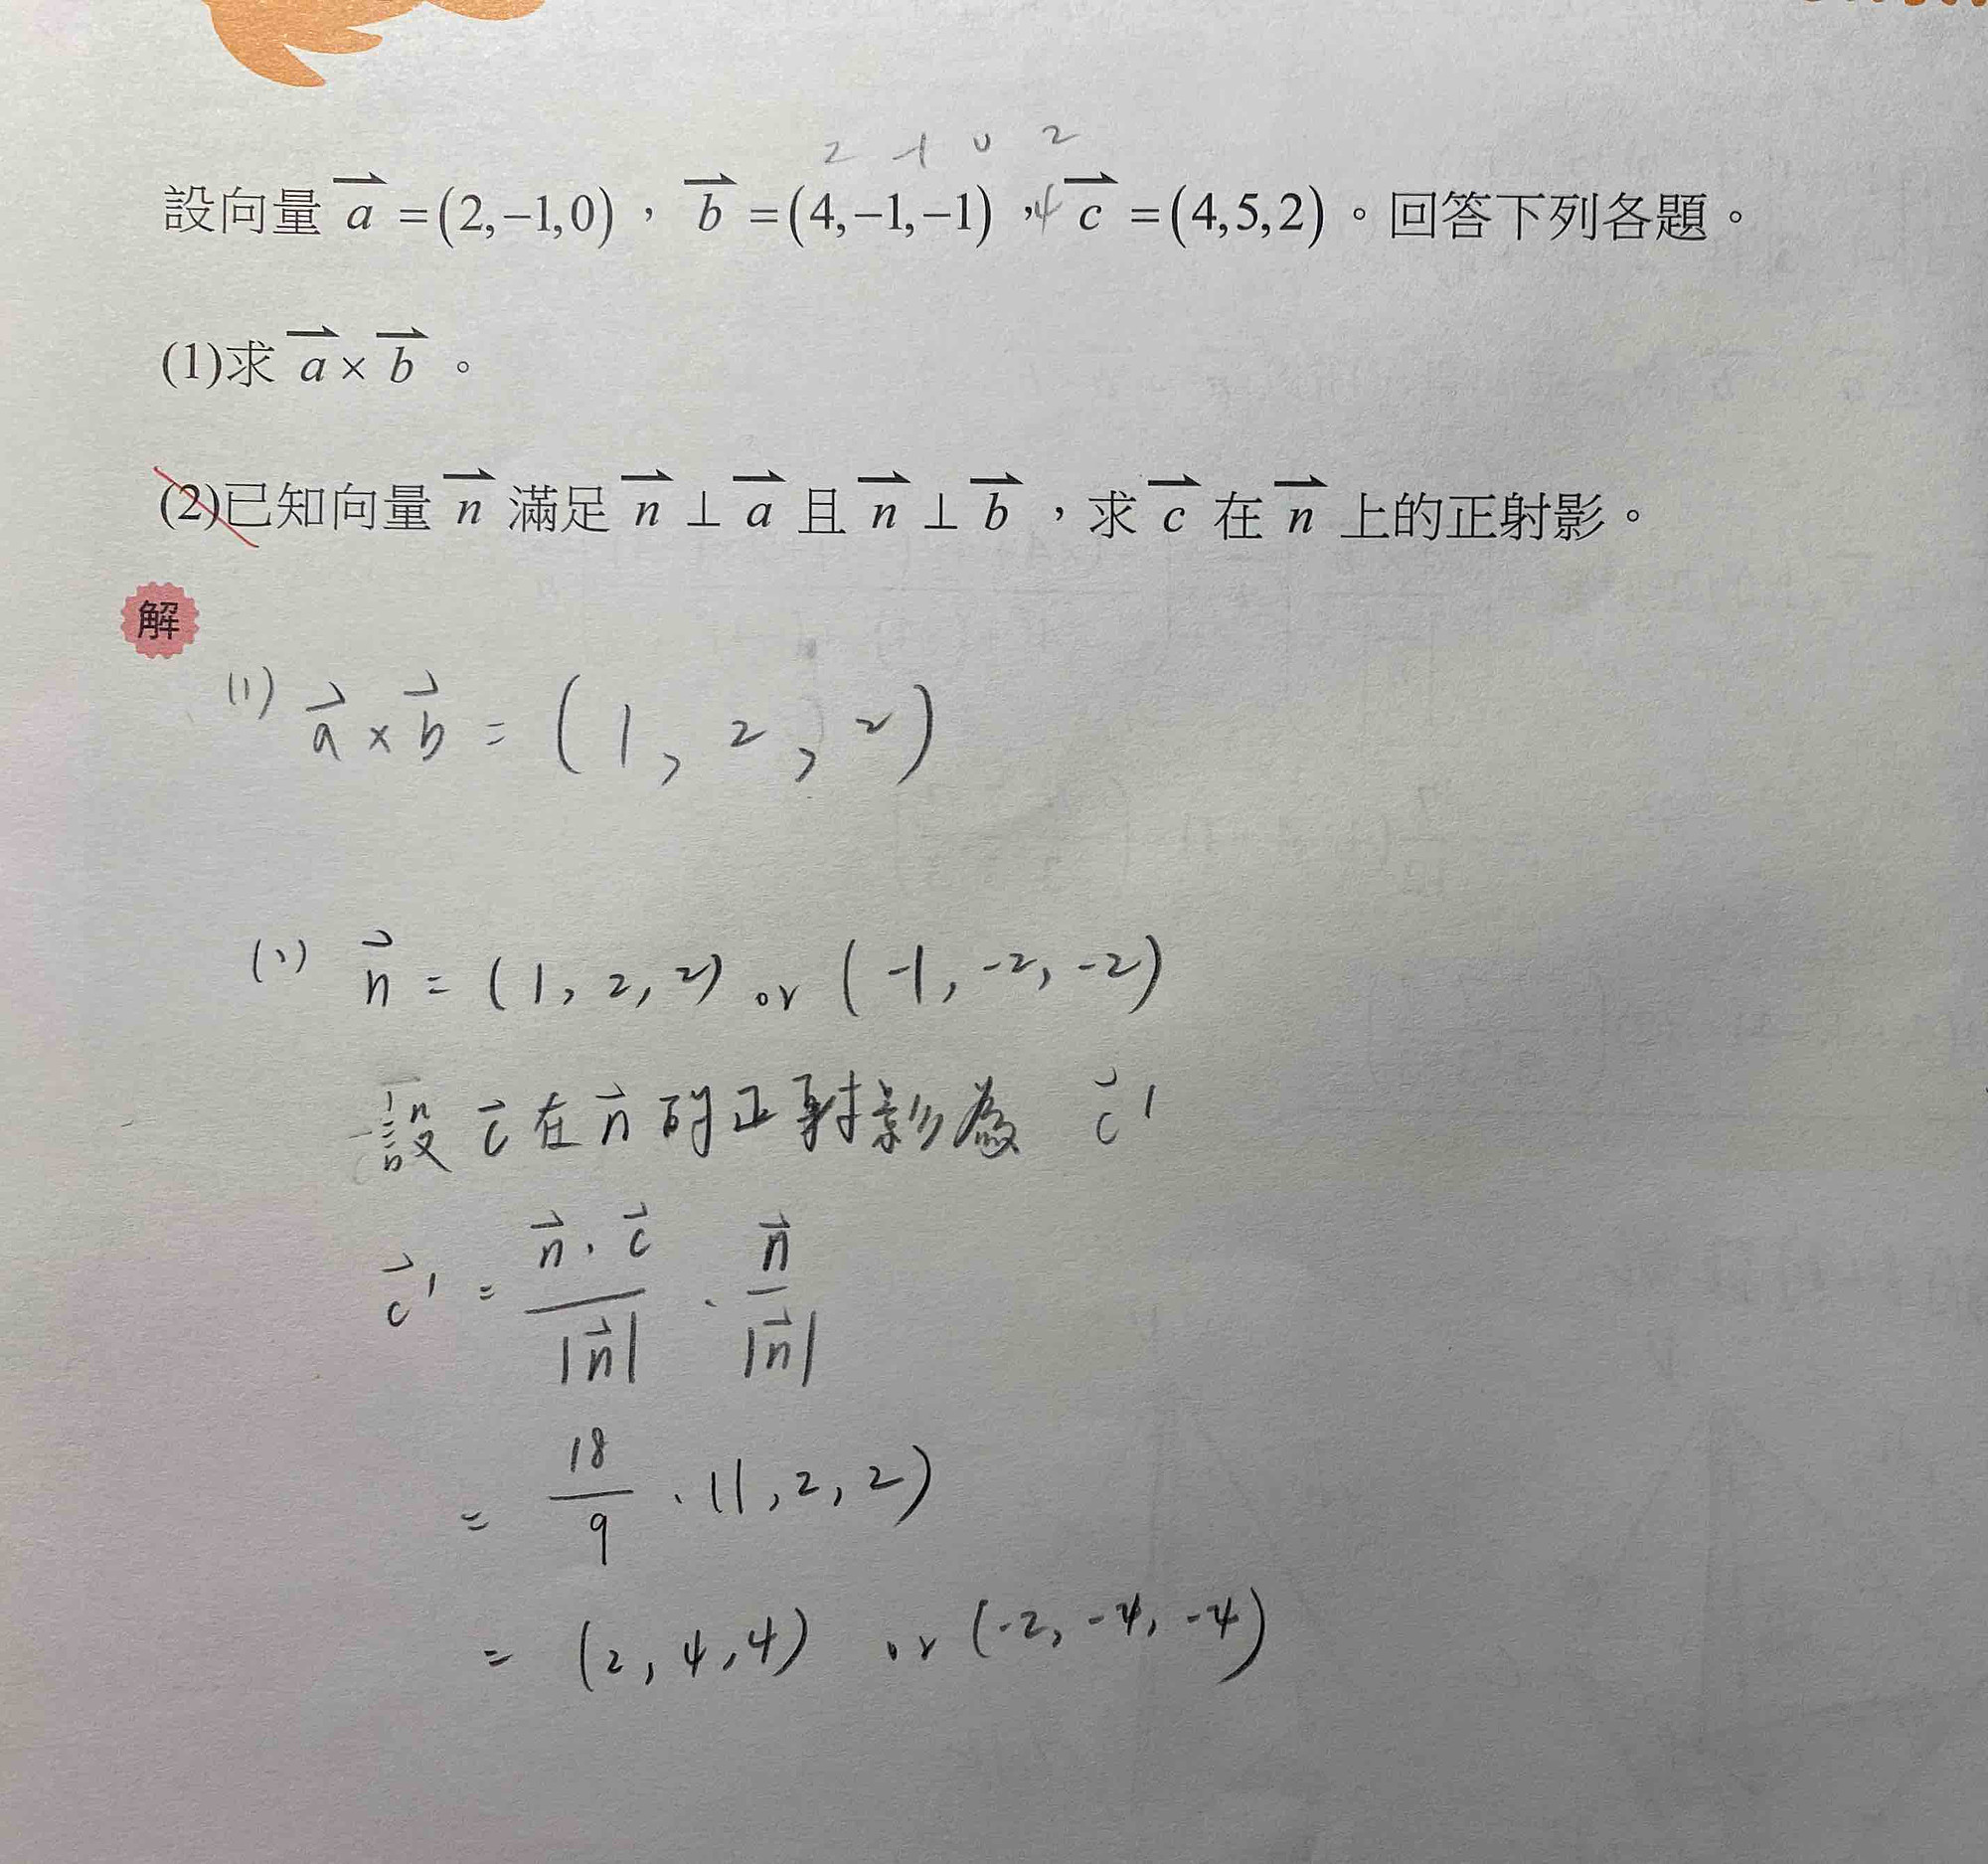 2 -1 0 2
設向量 a = (2,−1,0), b = (4,−1,−1), 4 c = (4,5,2)。回答下列各題。
(1)求 a × b 。
(2)已知向量 n 滿足 n ⊥ a 且 n ⊥ b ,求 c 在 n 上的正射影。
解
(1) a × b = (1, 2, 2)
(2) n = (1, 2, 2) or (-1, -2, -2)
設 c 在 n 的正射影為 c'
c' = n · c / |n| · n / |n|
= 18/9 · (1, 2, 2)
= (2, 4, 4) or (-2, -4, -4)